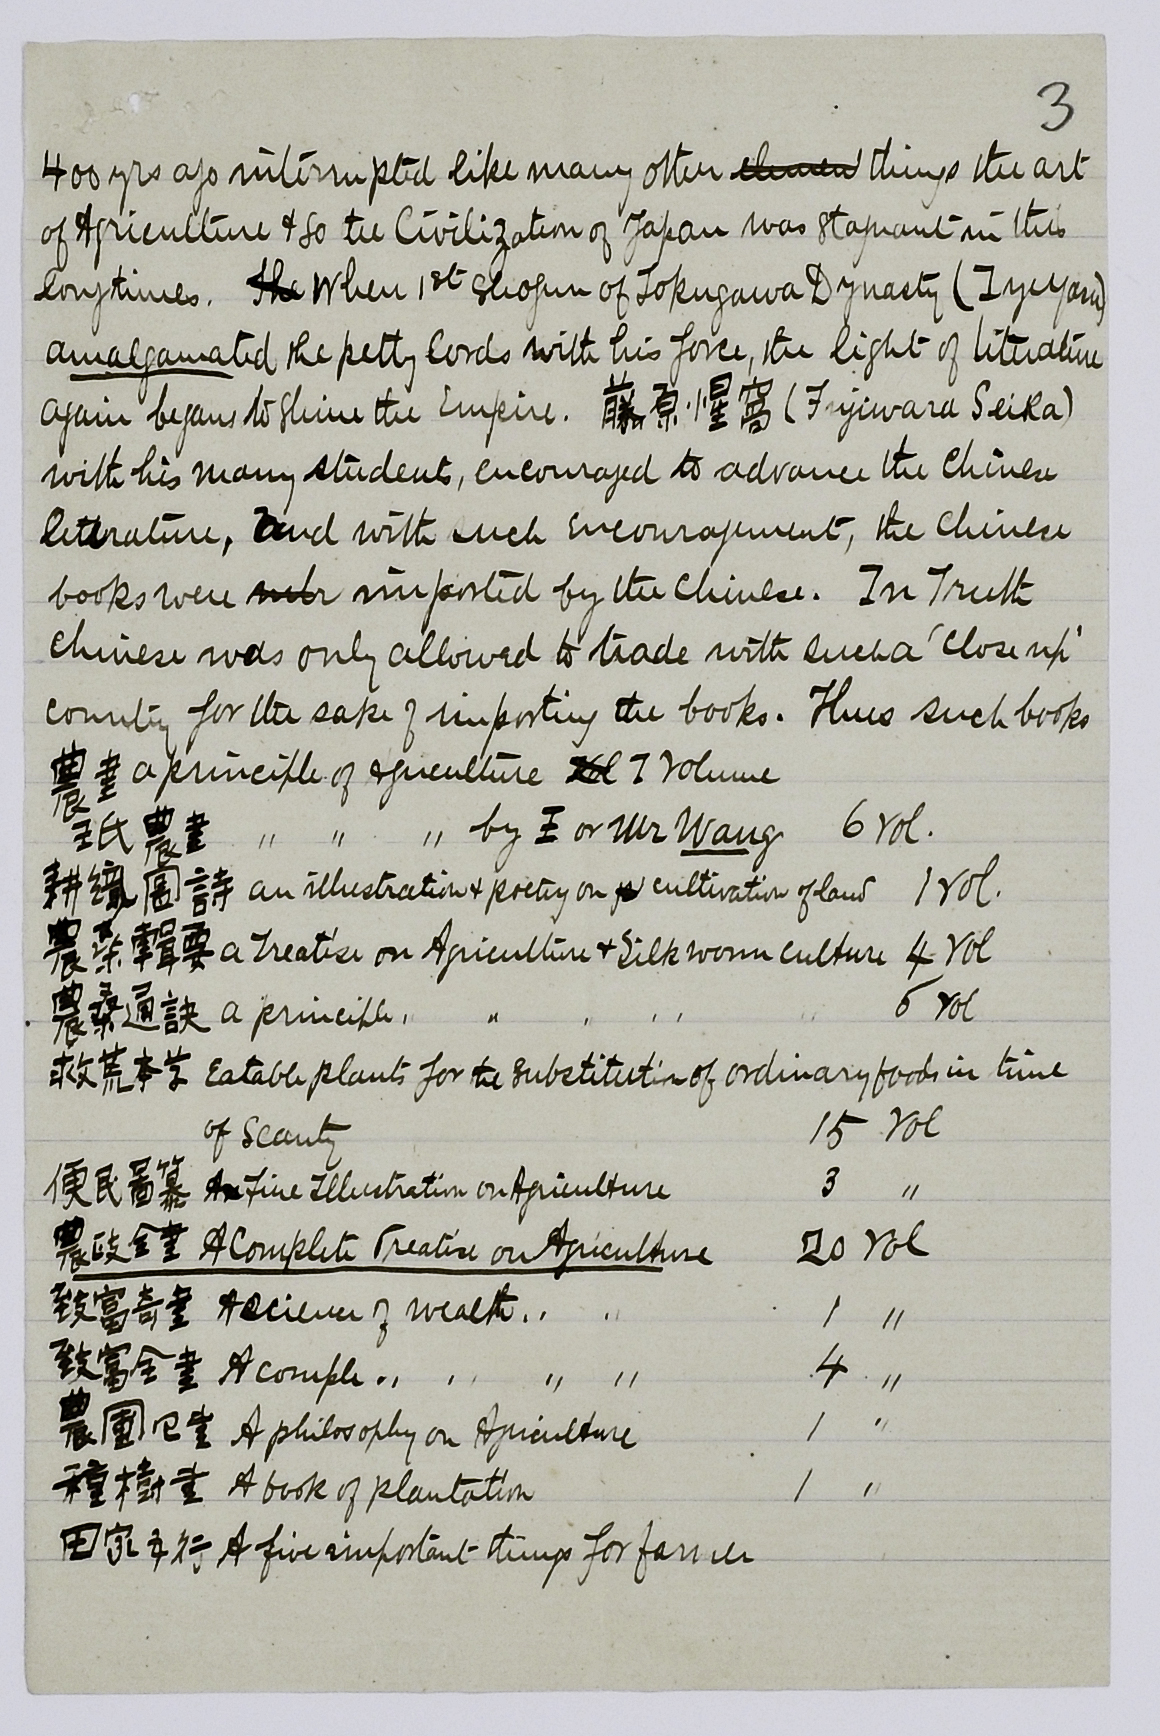 3
400 yrs ago interrupted like many other things the art
of Agriculture & so the Civilization of Japan was stagnant in this
long times. The When 1st Shogun of Tokugawa Dynasty (Iyeyasu)
amalgamated the petty Lords with his force, the light of literature
again began to shine the Empire. 藤原惺窩 (Fujiwara Seika)
with his many students, encouraged to advance the Chinese
literature, and with such encouragement, the Chinese
books were imported by the Chinese. In Truth
Chinese was only allowed to trade with such a 'Close up'
country for the sake of importing the books. Thus such books
農書 a principle of Agriculture Vol 7 Volume
王氏農書 〃 〃 〃 by 王 or Mr Wang 6 Vol.
耕織圖詩 an illustration & poetry on cultivation of land 1 Vol.
農桑輯要 a Treatise on Agriculture & Silkworm culture 4 Vol
農桑通訣 a principle 〃 〃 〃 〃 6 Vol
救荒本草 Eatable plants for the Substitution of ordinary foods in time
of Scanty 15 Vol
便民啚纂 A Fine Illustration on Agriculture 3 〃
農政全書 A Complete Treatise on Agriculture 20 Vol
致富奇書 A Science of wealth 〃 〃 1 〃
致富全書 A comple 〃 〃 〃 〃 4 〃
農圃書 A philosophy on Agriculture 1 〃
種樹書 A book of plantation 1 〃
田家五行 A five important things for farmer